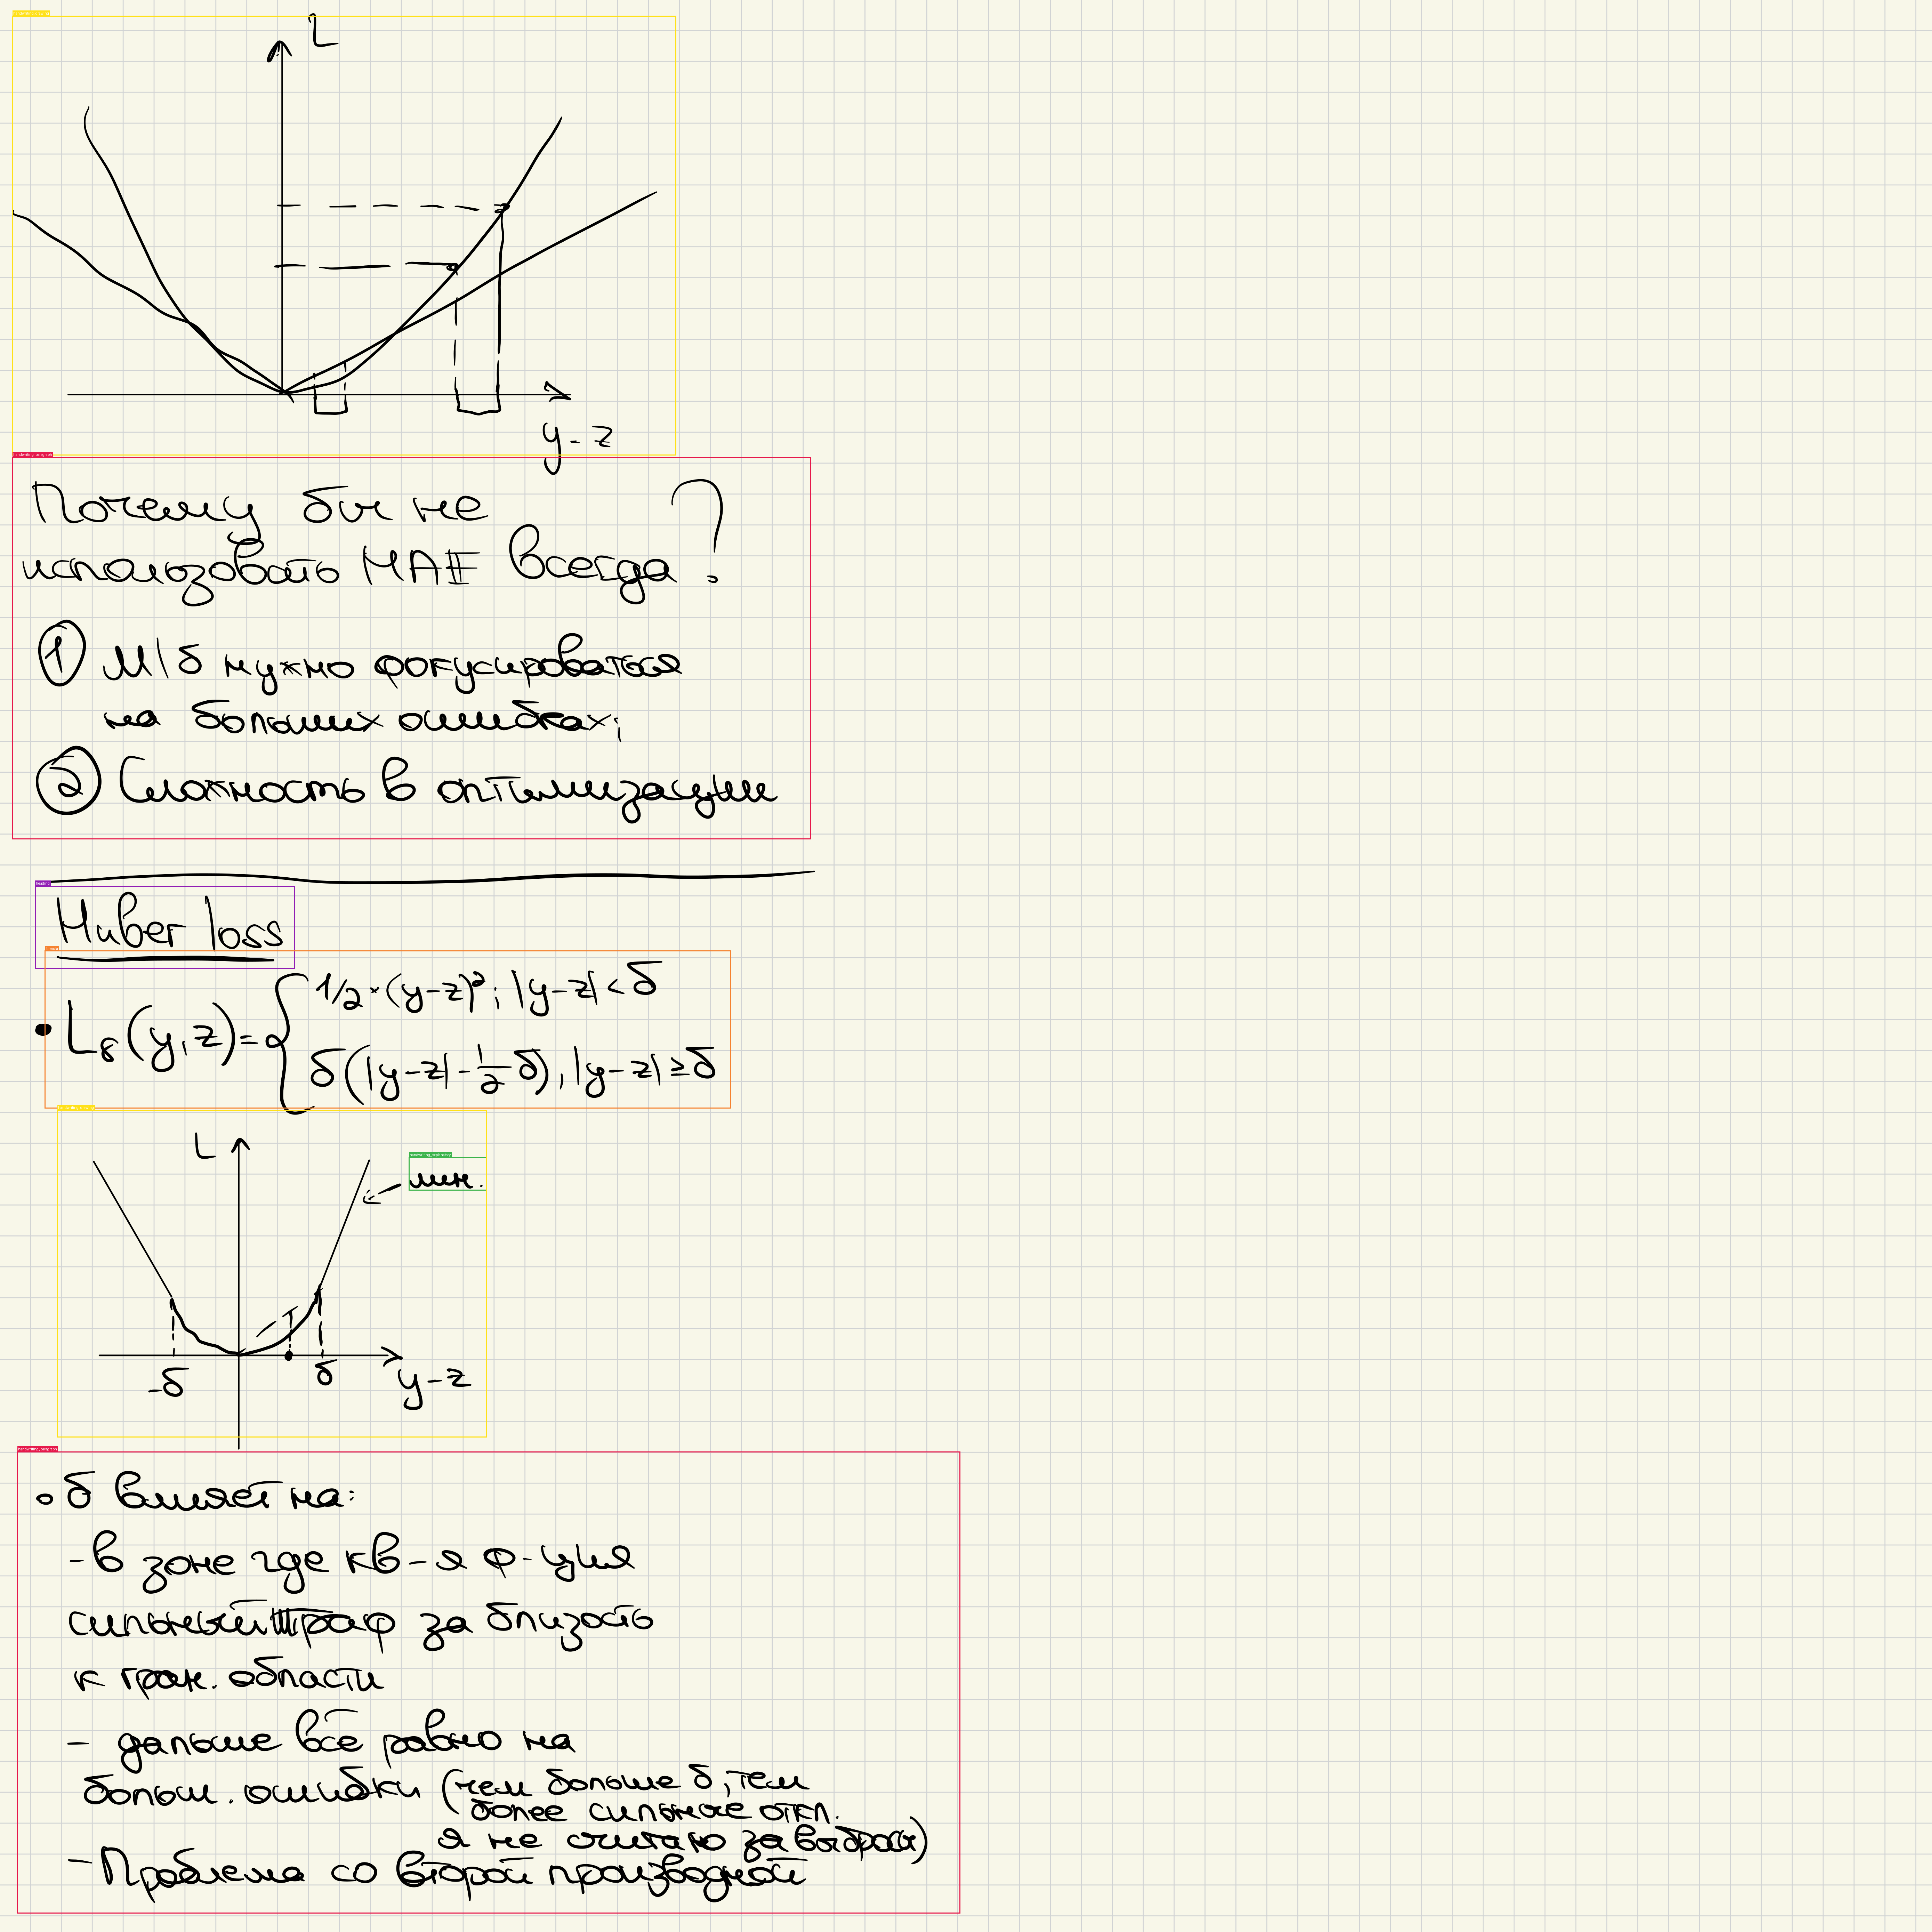 L
y-z
Почему бы не
использовать MAE всегда?
① М/б нужно фокусироваться
на больших ошибках;
② Сложность в оптимизации
Huber loss
• L_δ(y,z)= { 1/2 × (y-z)²; |y-z| < δ
δ(|y-z| - 1/2 δ), |y-z| ≥ δ
L
лин.
-δ δ y-z
∘ δ влияет на:
- в зоне где кв-я ф-ция
сильный штраф за близость
к гран. области
- дальше всё равно на
больш. ошибки (чем больше δ, тем
более сильные откл.
я не считаю за выбросы)
- Проблема со второй производной